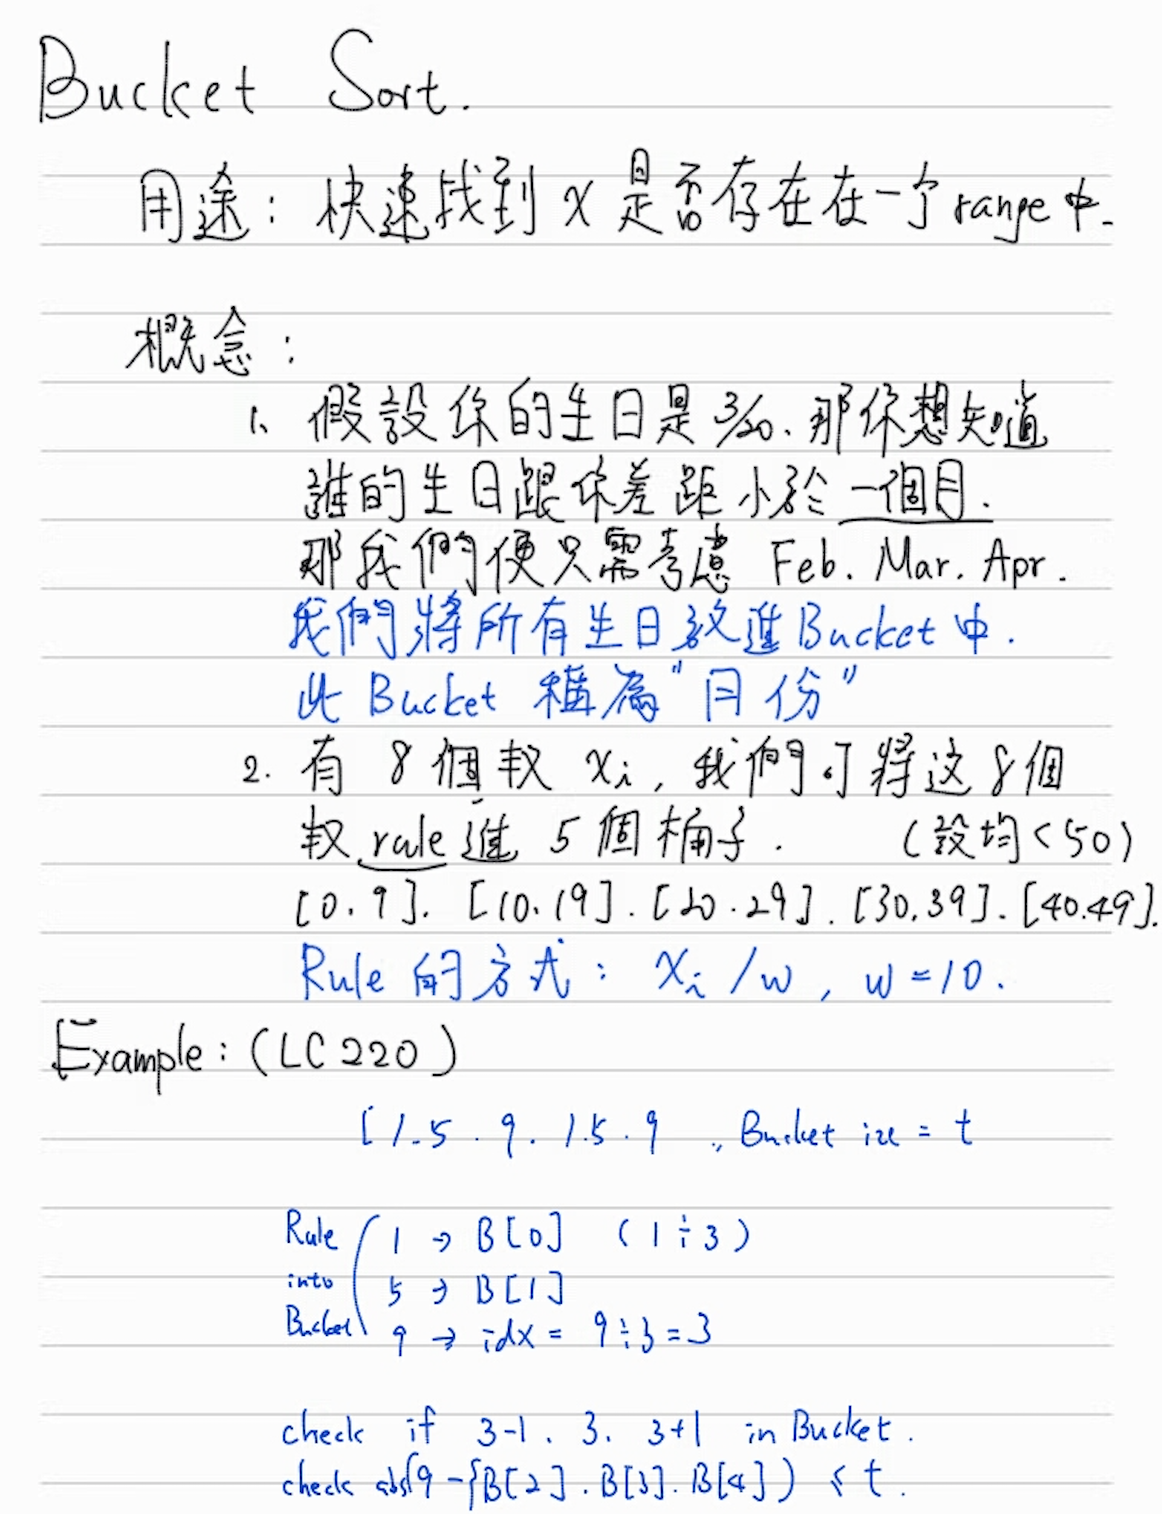 Bucket Sort.
用途: 快速找到 x 是否存在在一个range中.
概念:
1. 假設你的生日是 3/20. 那你想知道
誰的生日跟你差距小於一個月.
那我們便只需考慮 Feb. Mar. Apr.
我們將所有生日放進Bucket中.
此 Bucket 稱為"月份"
2. 有 8 個数 xi, 我們可將这8個
数 rule 進 5 個桶子. (設均<50)
[0.9]. [10.19]. [20.29]. [30.39]. [40.49].
Rule 的方式: xi /w, w=10.
Example: (LC 220)
[1.5.9.1.5.9 , Bucket size = t
Rule 1 → B[0] (1÷3)
into 5 → B[1]
Bucket 9 → idx = 9÷3=3
check if 3-1. 3. 3+1 in Bucket.
check abs(9-{B[2].B[3].B[4]) ≤ t.